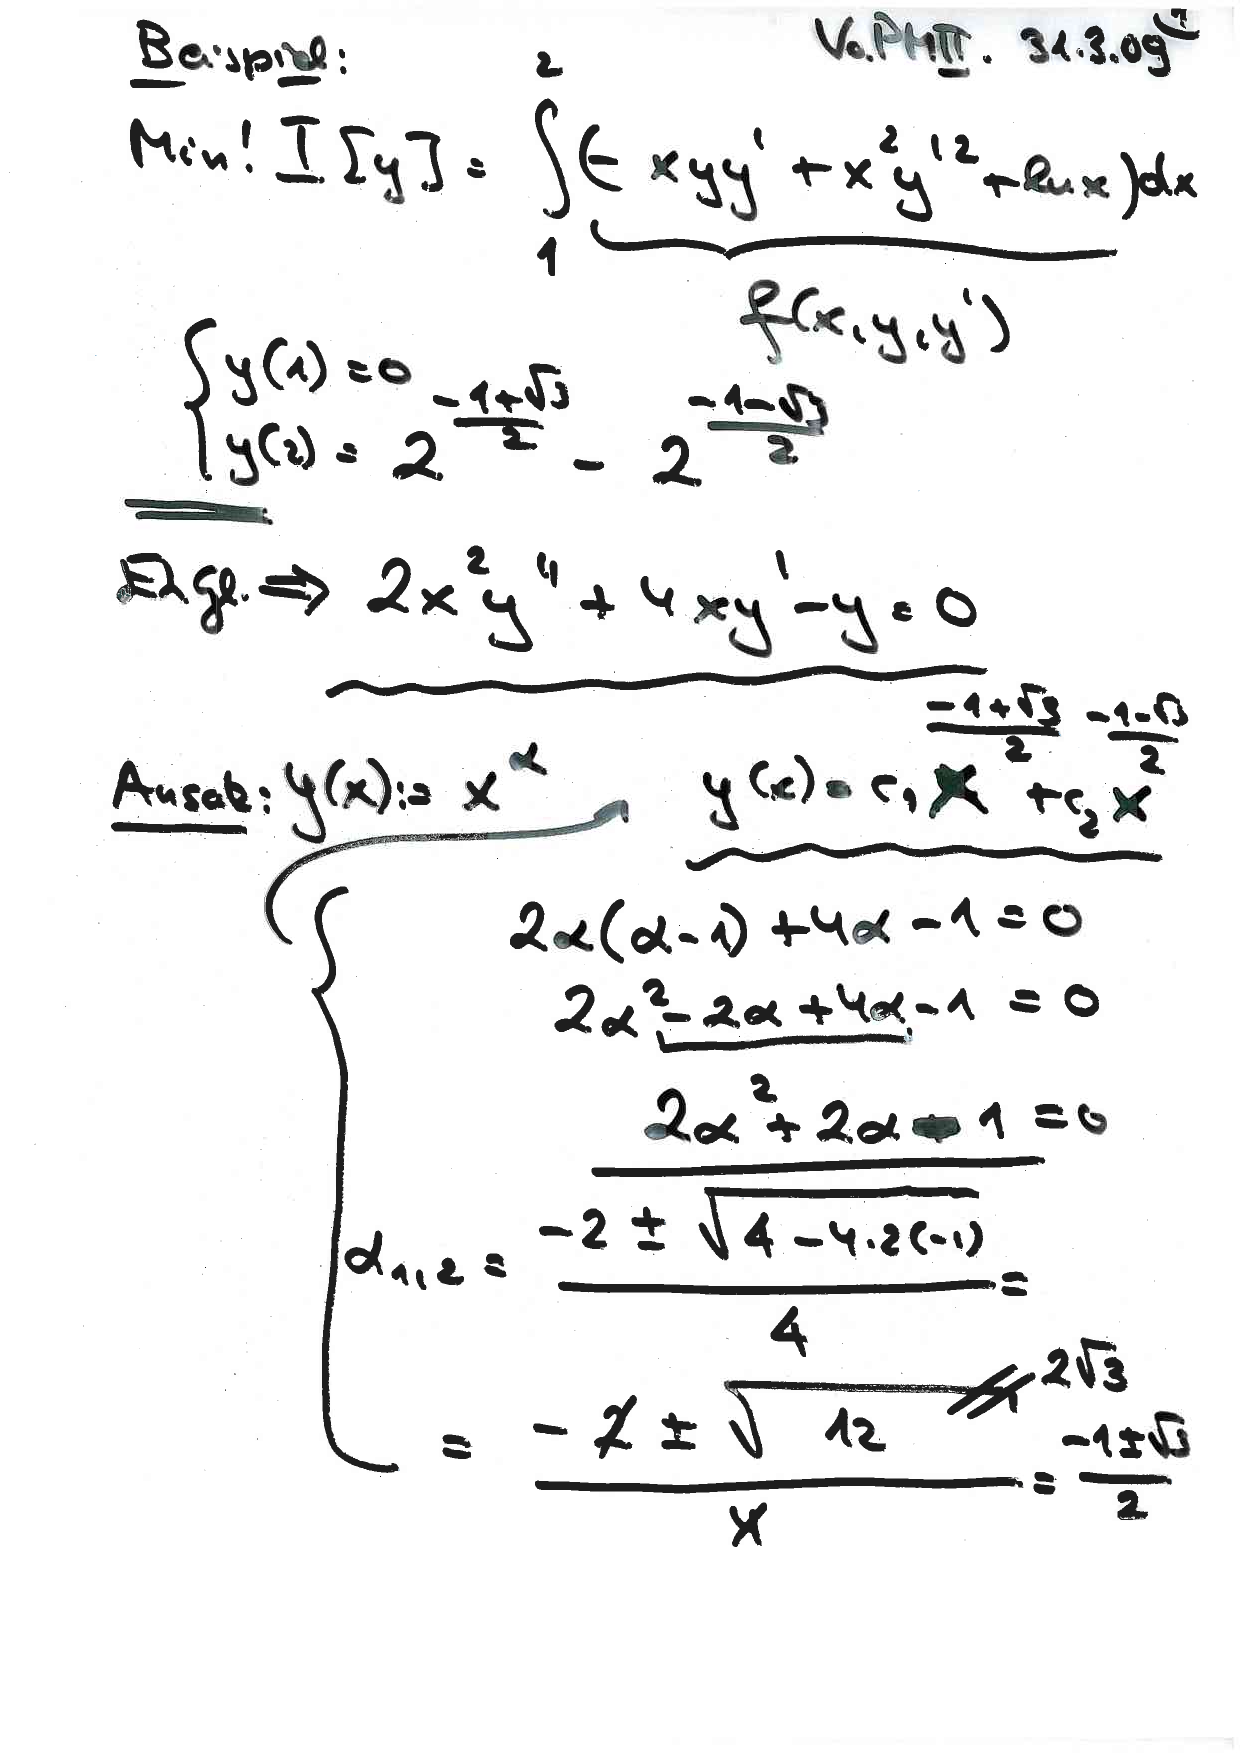 Beispiel: Vo.PMII. 31.3.09
Min! I[y] = ∫₁² (- xyy' + x²y'² + ln x) dx
f(x, y, y')
{ y(1) = 0
y(2) = 2^((-1+√3)/2) - 2^((-1-√3)/2)
ELgl. ⇒ 2x²y'' + 4xy' - y = 0
Ansatz: y(x) := x^α y(x) = c₁ x^((-1+√3)/2) + c₂ x^((-1-√3)/2)
2α(α-1) + 4α - 1 = 0
2α² - 2α + 4α - 1 = 0
2α² + 2α - 1 = 0
α₁,₂ = (-2 ± √(4 - 4.2(-1))) / 4 =
= (-2 ± √12) / 4 = (-1±√3)/2
2√3